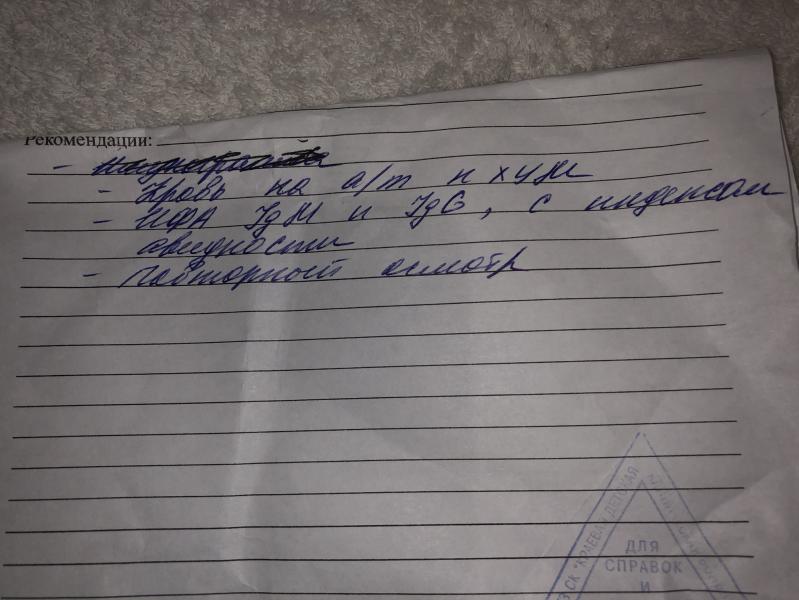 Рекомендации:
- Кровь на а/т к ХУМ
- ИФА IgM и IgG, с индексом
авидности
- Повторный осмотр
СК "КРАЕВАЯ ДЕТСКАЯ
ДЛЯ
СПРАВОК
И